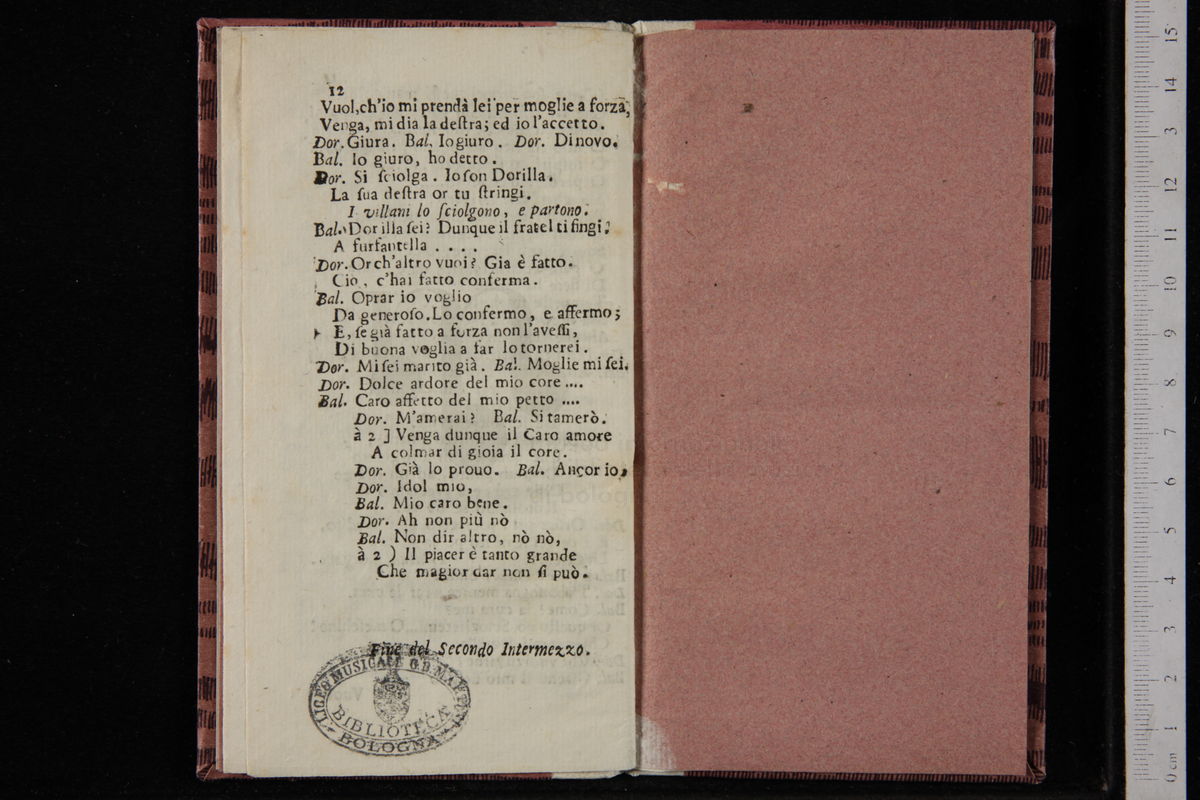 12
Vuol,ch'io mi prendà lei per moglie a forza,
Venga, mi dia la deſtra; ed io l'accetto.
Dor. Giura. Bal. Io giuro. Dor. Di novo.
Bal. Io giuro, ho detto.
Dor. Si ſciolga. Io ſon Dorilla.
La ſua deſtra or tu ſtringi.
I villani lo ſciolgono, e partono.
Bal. Dorilla ſei? Dunque il fratel ti fingi?
A furfantella . . . .
Dor. Or ch'altro vuoi? Gia è fatto.
Ciò, c'hai fatto conferma.
Bal. Oprar io voglio
Da generoſo. Lo confermo, e affermo;
E, ſe già fatto a forza non l'aveſſi,
Di buona voglia a far lo tornerei.
Dor. Mi ſei marito già. Bal. Moglie mi ſei.
Dor. Dolce ardore del mio core ....
Bal. Caro affetto del mio petto ....
Dor. M'amerai? Bal. Si tamerò.
à 2 ] Venga dunque il Caro amore
A colmar di gioia il core.
Dor. Già lo prouo. Bal. Ancor io,
Dor. Idol mio,
Bal. Mio caro bene.
Dor. Ah non più nò
Bal. Non dir altro, nò nò,
à 2 ) Il piacer è tanto grande
Che magior dar non ſi può.
Fine del Secondo Intermezzo.
LICEO MUSICALE G.B. MARTINI
BIBLIOTECA
BOLOGNA
0 cm 1 2 3 4 5 6 7 8 9 10 11 12 3 14 15